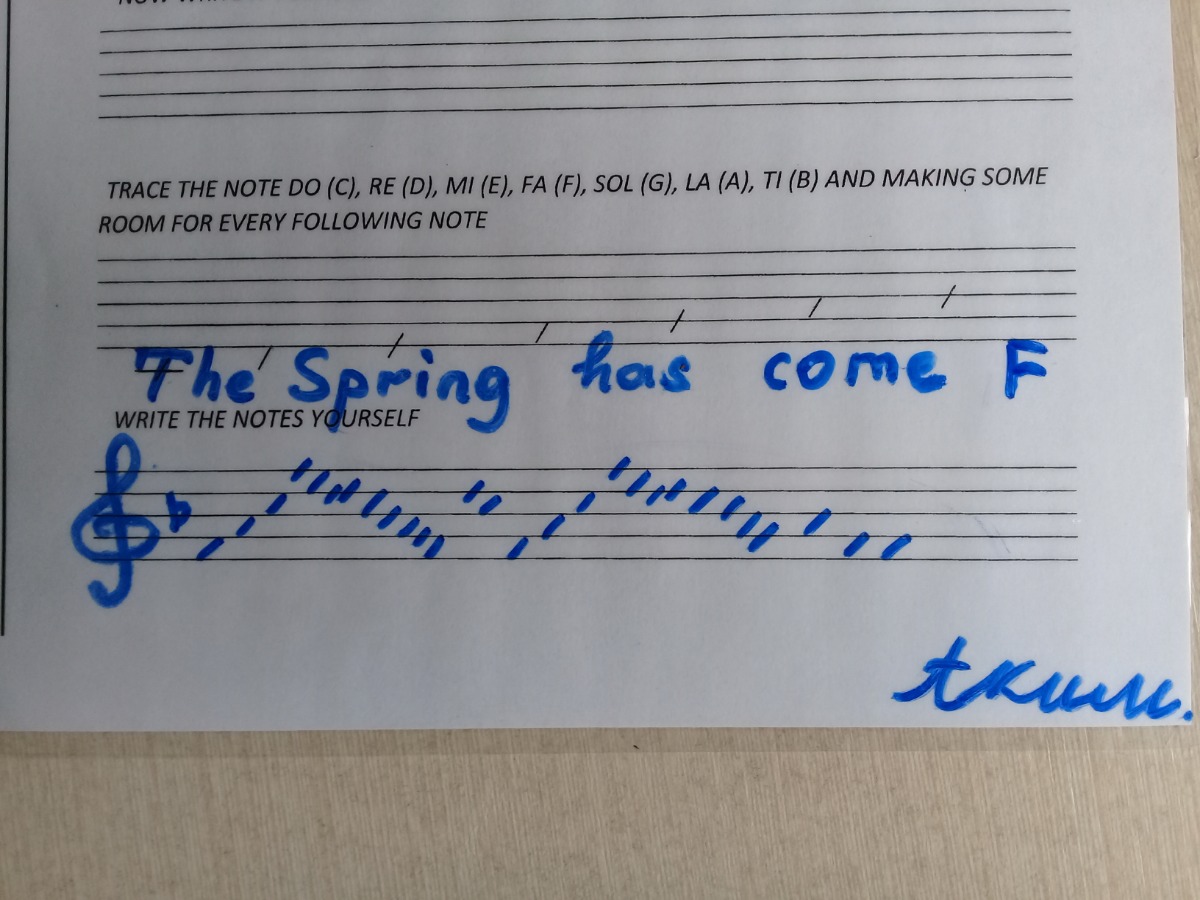 TRACE THE NOTE DO (C), RE (D), MI (E), FA (F), SOL (G), LA (A), TI (B) AND MAKING SOME
ROOM FOR EVERY FOLLOWING NOTE
The Spring has come F
WRITE THE NOTES YOURSELF